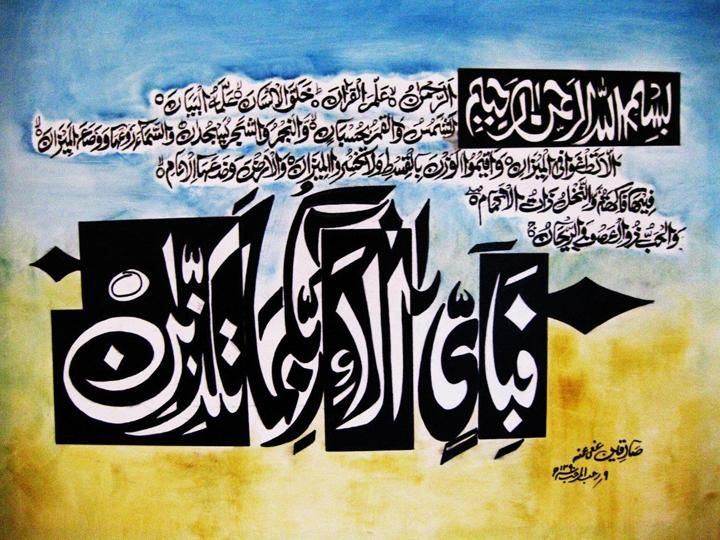 بِسْمِ اللهِ الرَّحْمٰنِ الرَّحِيْمِ
اَلرَّحْمٰنُ عَلَّمَ الْقُرْاٰنَ خَلَقَ الْاِنْسَانَ عَلَّمَهُ الْبَيَانَ
اَلشَّمْسُ وَالْقَمَرُ بِحُسْبَانٍ وَّالنَّجْمُ وَالشَّجَرُ يَسْجُدٰنِ وَالسَّمَآءَ رَفَعَهَا وَوَضَعَ الْمِيْزَانَ
اَلَّا تَطْغَوْا فِى الْمِيْزَانِ وَاَقِيْمُوا الْوَزْنَ بِالْقِسْطِ وَلَا تُخْسِرُوا الْمِيْزَانَ وَالْاَرْضَ وَضَعَهَا لِلْاَنَامِ
فِيْهَا فَاكِهَةٌ وَّالنَّخْلُ ذَاتُ الْاَكْمَامِ
وَالْحَبُّ ذُو الْعَصْفِ وَالرَّيْحَانُ
فَبِاَيِّ اٰلَآءِ رَبِّكُمَا تُكَذِّبٰنِ
صادقین عفی عنہ
۹ رجب المرجب